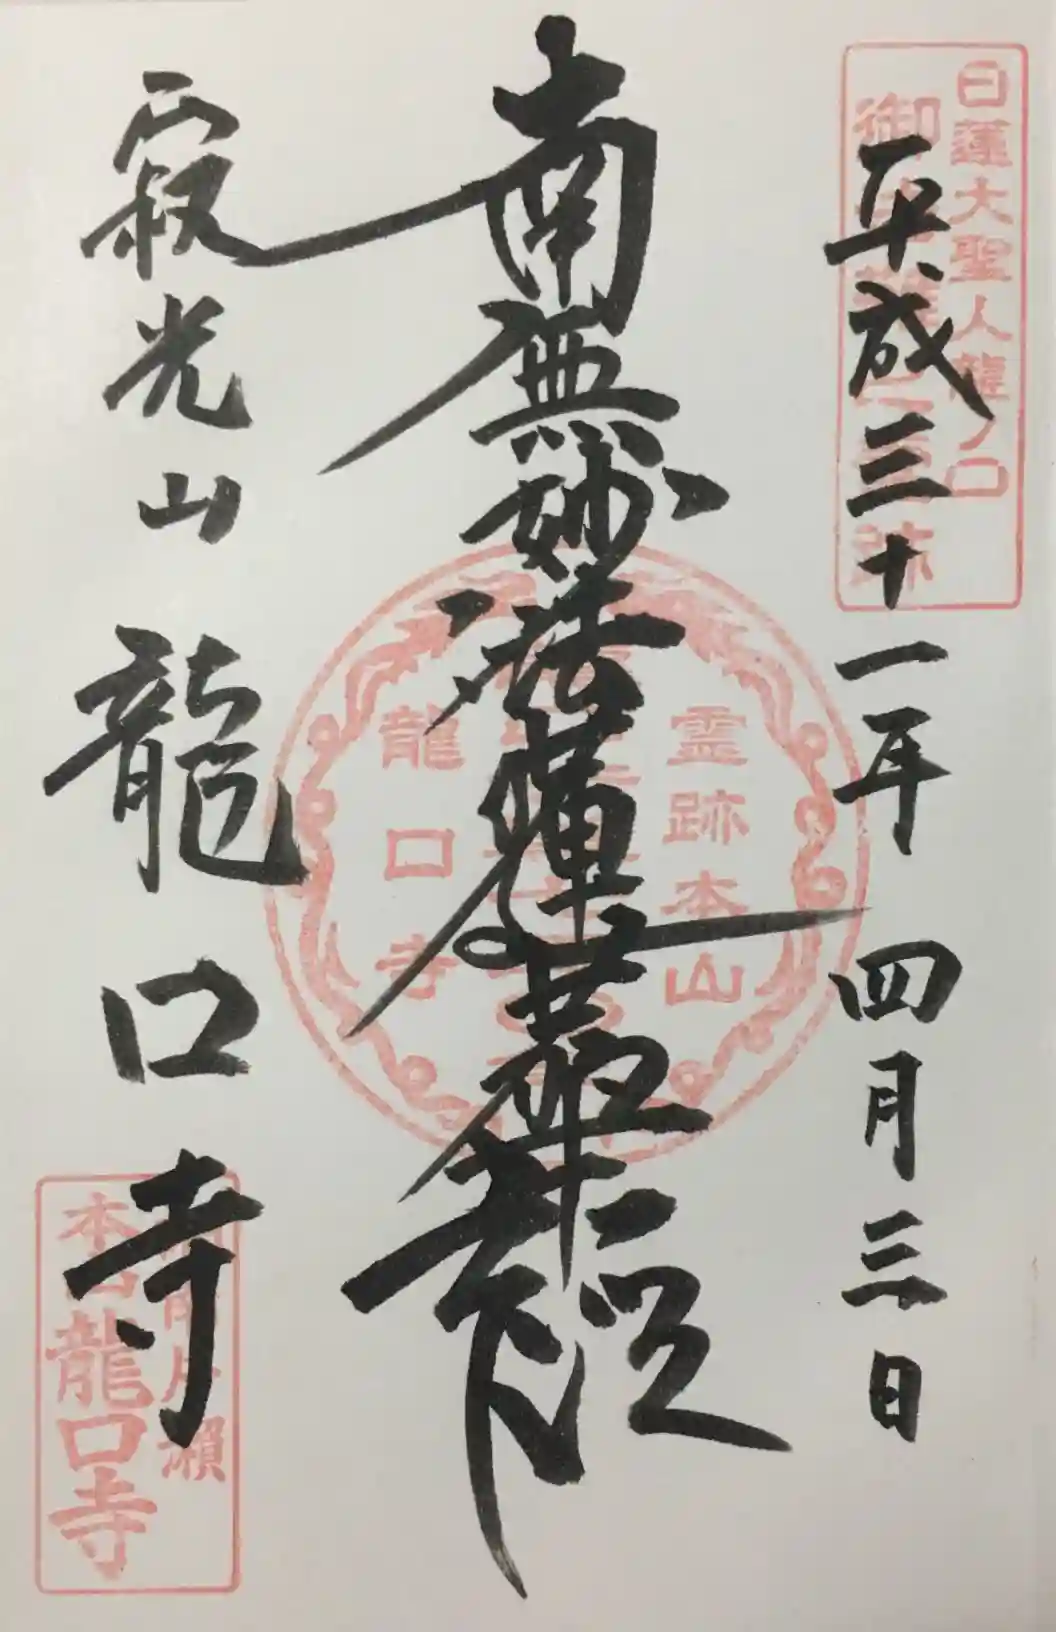 日蓮大聖人龍ノ口
平成三十一年四月三日
南無妙法蓮華経
霊跡本山
龍口寺
寂光山龍口寺
本山龍口寺